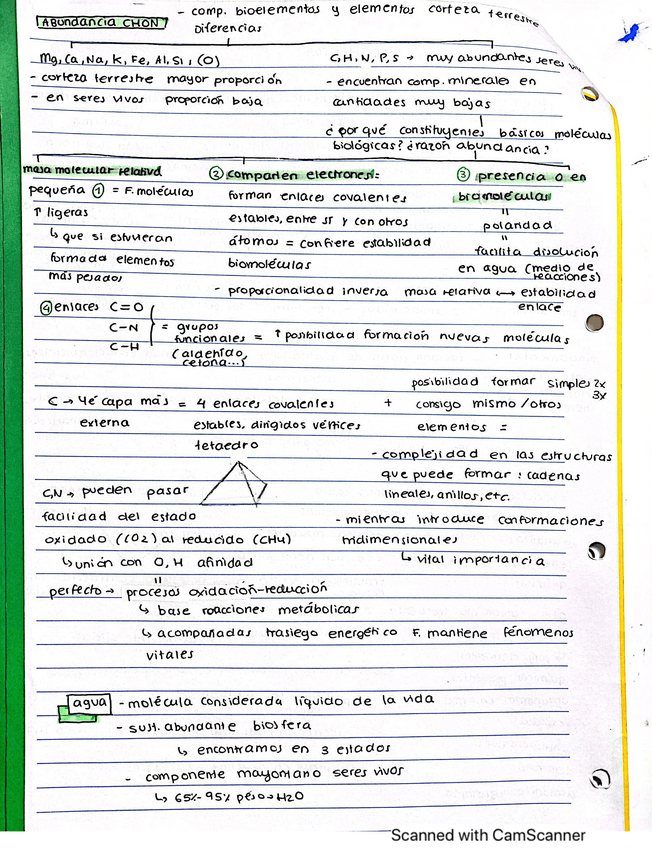 ABUNDANCIA CHON
- comp. bioelementos y elementos corteza terrestre
Diferencias
Mg, Ca, Na, K, Fe, Al, Si, (O)
- corteza terrestre mayor proporción
- en seres vivos proporción baja
C, H, N, P, S → muy abundantes seres
- encuentran comp. minerales en
cantidades muy bajas
¿por qué constituyentes básicos moléculas
biológicas? ¿razón abundancia?
masa molecular relativa
pequeña ① = F. moléculas
↑ ligeras
↳ que si estuvieran
formada elementos
más pesados
② comparten electrones:
forman enlaces covalentes
estables, entre sí y con otros
átomos = confiere estabilidad
biomoléculas
- proporcionalidad inversa masa relativa ↔ estabilidad
enlace
③ presencia O en
biomoléculas
"
polaridad
"
facilita disolución
en agua (medio de
reacciones)
④ enlaces C=O
C-N
C-H
= grupos
funcionales = ↑ posibilidad formación nuevas moléculas
(aldehído,
cetona...)
C → 4é capa más = 4 enlaces covalentes
externa
estables, dirigidos vértices
tetaedro
+
posibilidad formar simples 2x
3x
consigo mismo / otros
elementos =
- complejidad en las estructuras
que puede formar: cadenas
lineales, anillos, etc.
- mientras introduce conformaciones
tridimensionales
↳ vital importancia
C, N → pueden pasar
facilidad del estado
oxidado (CO2) al reducido (CH4)
↳ unión con O, H afinidad
"
perfecto → procesos oxidación-reducción
↳ base reacciones metábolicas
↳ acompañadas trasiego energético F. mantiene fénomenos
vitales
agua - molécula considerada líquido de la vida
- sust. abundante biosfera
↳ encontramos en 3 estados
- componente mayoritario seres vivos
↳ 65%-95% peso → H2O
Scanned with CamScanner